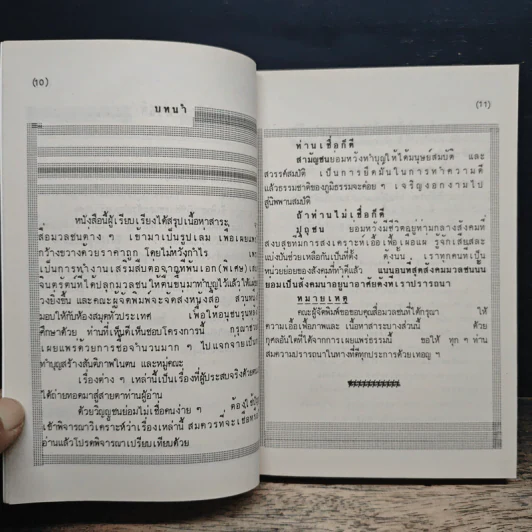 (10)
บทนำ
หนังสือนี้ผู้เรียบเรียงได้สรุปเนื้อหาสาระ
สื่อมวลชนต่าง ๆ เข้ามาเป็นรูปเล่ม เพื่อเผยแพร่
กว้างขวางด้วยราคาถูก โดยไม่หวังกำไร
เป็นการทำงานเสริมสืบต่อจากที่พันเอก(พิเศษ)
จินตรัตน์ที่ได้ปลุกมวลชนให้ตื่นขึ้นมาทำบุญให้
วงยิ่งขึ้น และคณะผู้จัดพิมพ์จะจัดส่งหนังสือ ส่วนหนึ่ง
มอบให้กับห้องสมุดทั่วประเทศ เพื่อให้อนุชนรุ่นหลัง
ศึกษาด้วย ท่านที่เห็นดีเห็นชอบโครงการนี้ กรุณาช่วย
เผยแพร่ด้วยการซื้อจำนวนมาก ๆ ไปแจกจ่ายเป็นการ
ทำบุญสร้างสันติภาพในตน และหมู่คณะ
เรื่องต่าง ๆ เหล่านี้เป็นเรื่องที่ผู้ประสบจริงด้วยตนเอง
ได้ถ่ายทอดมาสู่สายตาท่านผู้อ่าน
ด้วยวิญญูชนย่อมไม่เชื่อคนง่าย ๆ
เข้าพิจารณาวิเคราะห์ว่าเรื่องเหล่านี้ สมควรที่จะเชื่อหรือ
อ่านแล้วโปรดพิจารณาเปรียบเทียบด้วย
(11)
ท่านเชื่อก็ดี
สามัญชนย่อมหวังทำบุญให้ได้มนุษย์สมบัติ และ
สวรรค์สมบัติ เป็นการยึดมั่นในการทำความดี
แล้วธรรมชาติของภูมิธรรมจะค่อย ๆ เจริญงอกงามไป
สู่นิพพานสมบัติ
ถ้าท่านไม่เชื่อก็ดี
ปุถุชน ย่อมหวังมีชีวิตอยู่ท่ามกลางสังคมที่
สงบสุขที่มีการสงเคราะห์เอื้อเฟื้อเผื่อแผ่ รู้จักเสียสละ
แบ่งปันช่วยเหลือกันเป็นที่ตั้ง ดังนั้น เราทุกคนที่เป็น
หน่วยย่อยของสังคมที่ทำดีแล้ว แน่นอนที่สุดสังคมมวลชนนั้น
ย่อมเป็นสังคมน่าอยู่น่าอาศัยดังเราปรารถนา
หมายเหตุ
คณะผู้จัดพิมพ์ขอขอบคุณสื่อมวลชนที่ได้กรุณา ให้
ความเอื้อเฟื้อภาพและ เนื้อหาสาระบางส่วนนี้ ด้วย
กุศลอันใดที่ได้จากการเผยแพร่ธรรมนี้ ขอให้ ทุก ๆ ท่าน
สมความปรารถนาในทางที่ดีทุกประการด้วยเทอญ ฯ